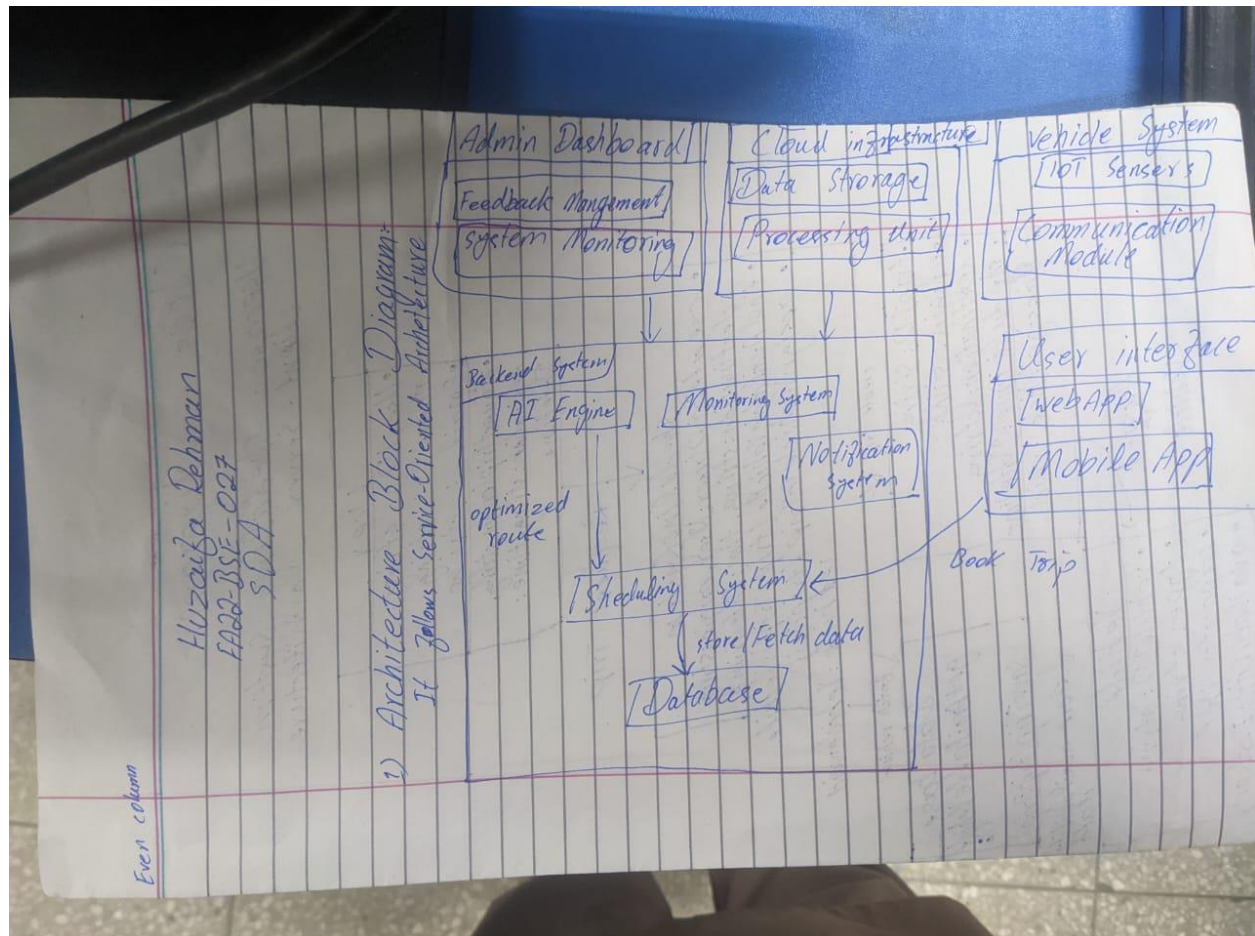 Even column
Huzaifa Rehman
FA22-BSE-027
SDA
1) Architecture Block Diagram:
It follows Service-Oriented Architecture
Admin Dashboard
Feedback Mangement
System Monitoring
Cloud infrastructure
Data Strorage
Processing Unit
Vehicle System
IoT Sensers
Communication
Module
Backend System
AI Engine
Monitoring System
Notification
System
optimized
route
Sheduling System
store/Fetch data
Database
User interface
Web App
Mobile App
Book Trip